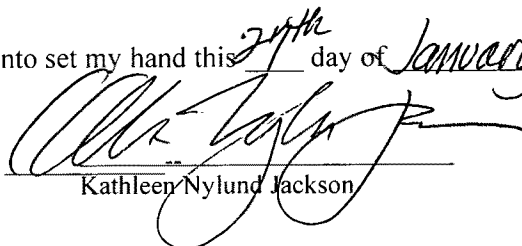 nto set my hand this 24th day of January
Kathleen Nylund Jackson